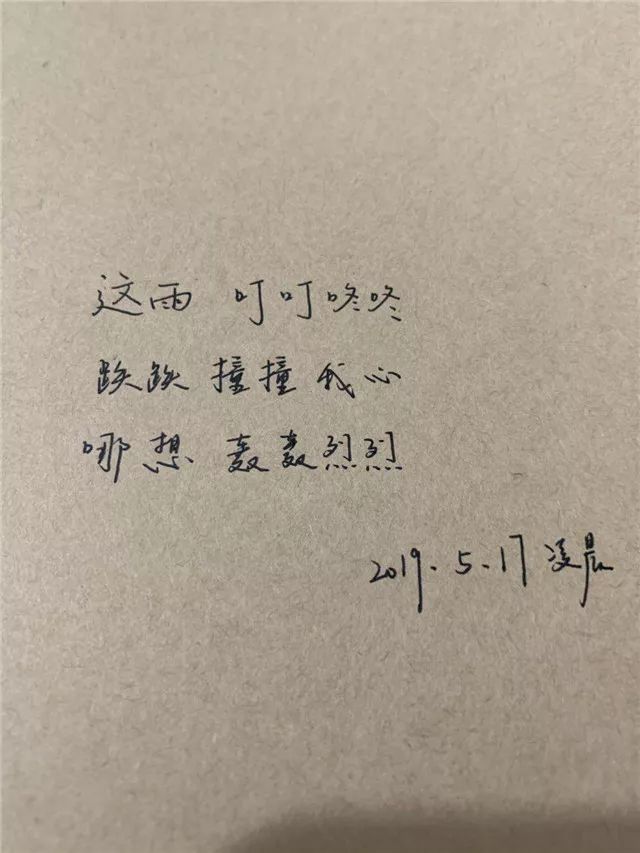 这雨 叮叮咚咚
跌跌 撞撞 我心
哪想 轰轰烈烈
2019.5.17 凌晨